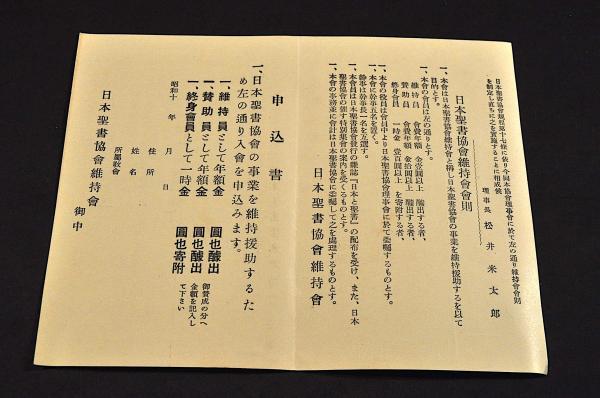 日本聖書協會規程第十七條に依り今回本協會理事會に於て左の通り維持會會則
を制定し直ちに之を實施することに相成候
理事長 松井米太郎
日本聖書協會維持會會則
一、本會は日本聖書協會維持會と稱し日本聖書協會の事業を維持援助するを以て
目的とす。
一、本會の會員は左の通りとす。
維持員 會費年額 金壹圓以上 醵出する者、
贊助員 會費年額 金拾圓以上 醵出する者、
終身會員 一時金 壹百圓以上 を寄附する者、
一、本會の役員は會員中より日本聖書協會理事會に於て委囑するものとす。
一、本會に幹事五名を置く。
幹事は幹事長一名を互選す。
一、本會員は日本聖書協會發行の雜誌『日本と聖書』の配布を受け、また、日本
聖書協會の催す特別集會の案内を受くるものとす。
一、本會の事務並に會計は日本聖書協會に委囑して之を處理するものとす。
日本聖書協會維持會
申込書
一、日本聖書協會の事業を維持援助するた
め左の通り入會を申込みます。
一、維持員として年額金 圓也醵出
一、贊助員として年額金 圓也醵出
一、終身會員として一時金 圓也寄附
御贊成の分へ
金額を記入し
て下さい
昭和十 年 月 日
住所
姓名
所屬敎會
日本聖書協會維持會 御中